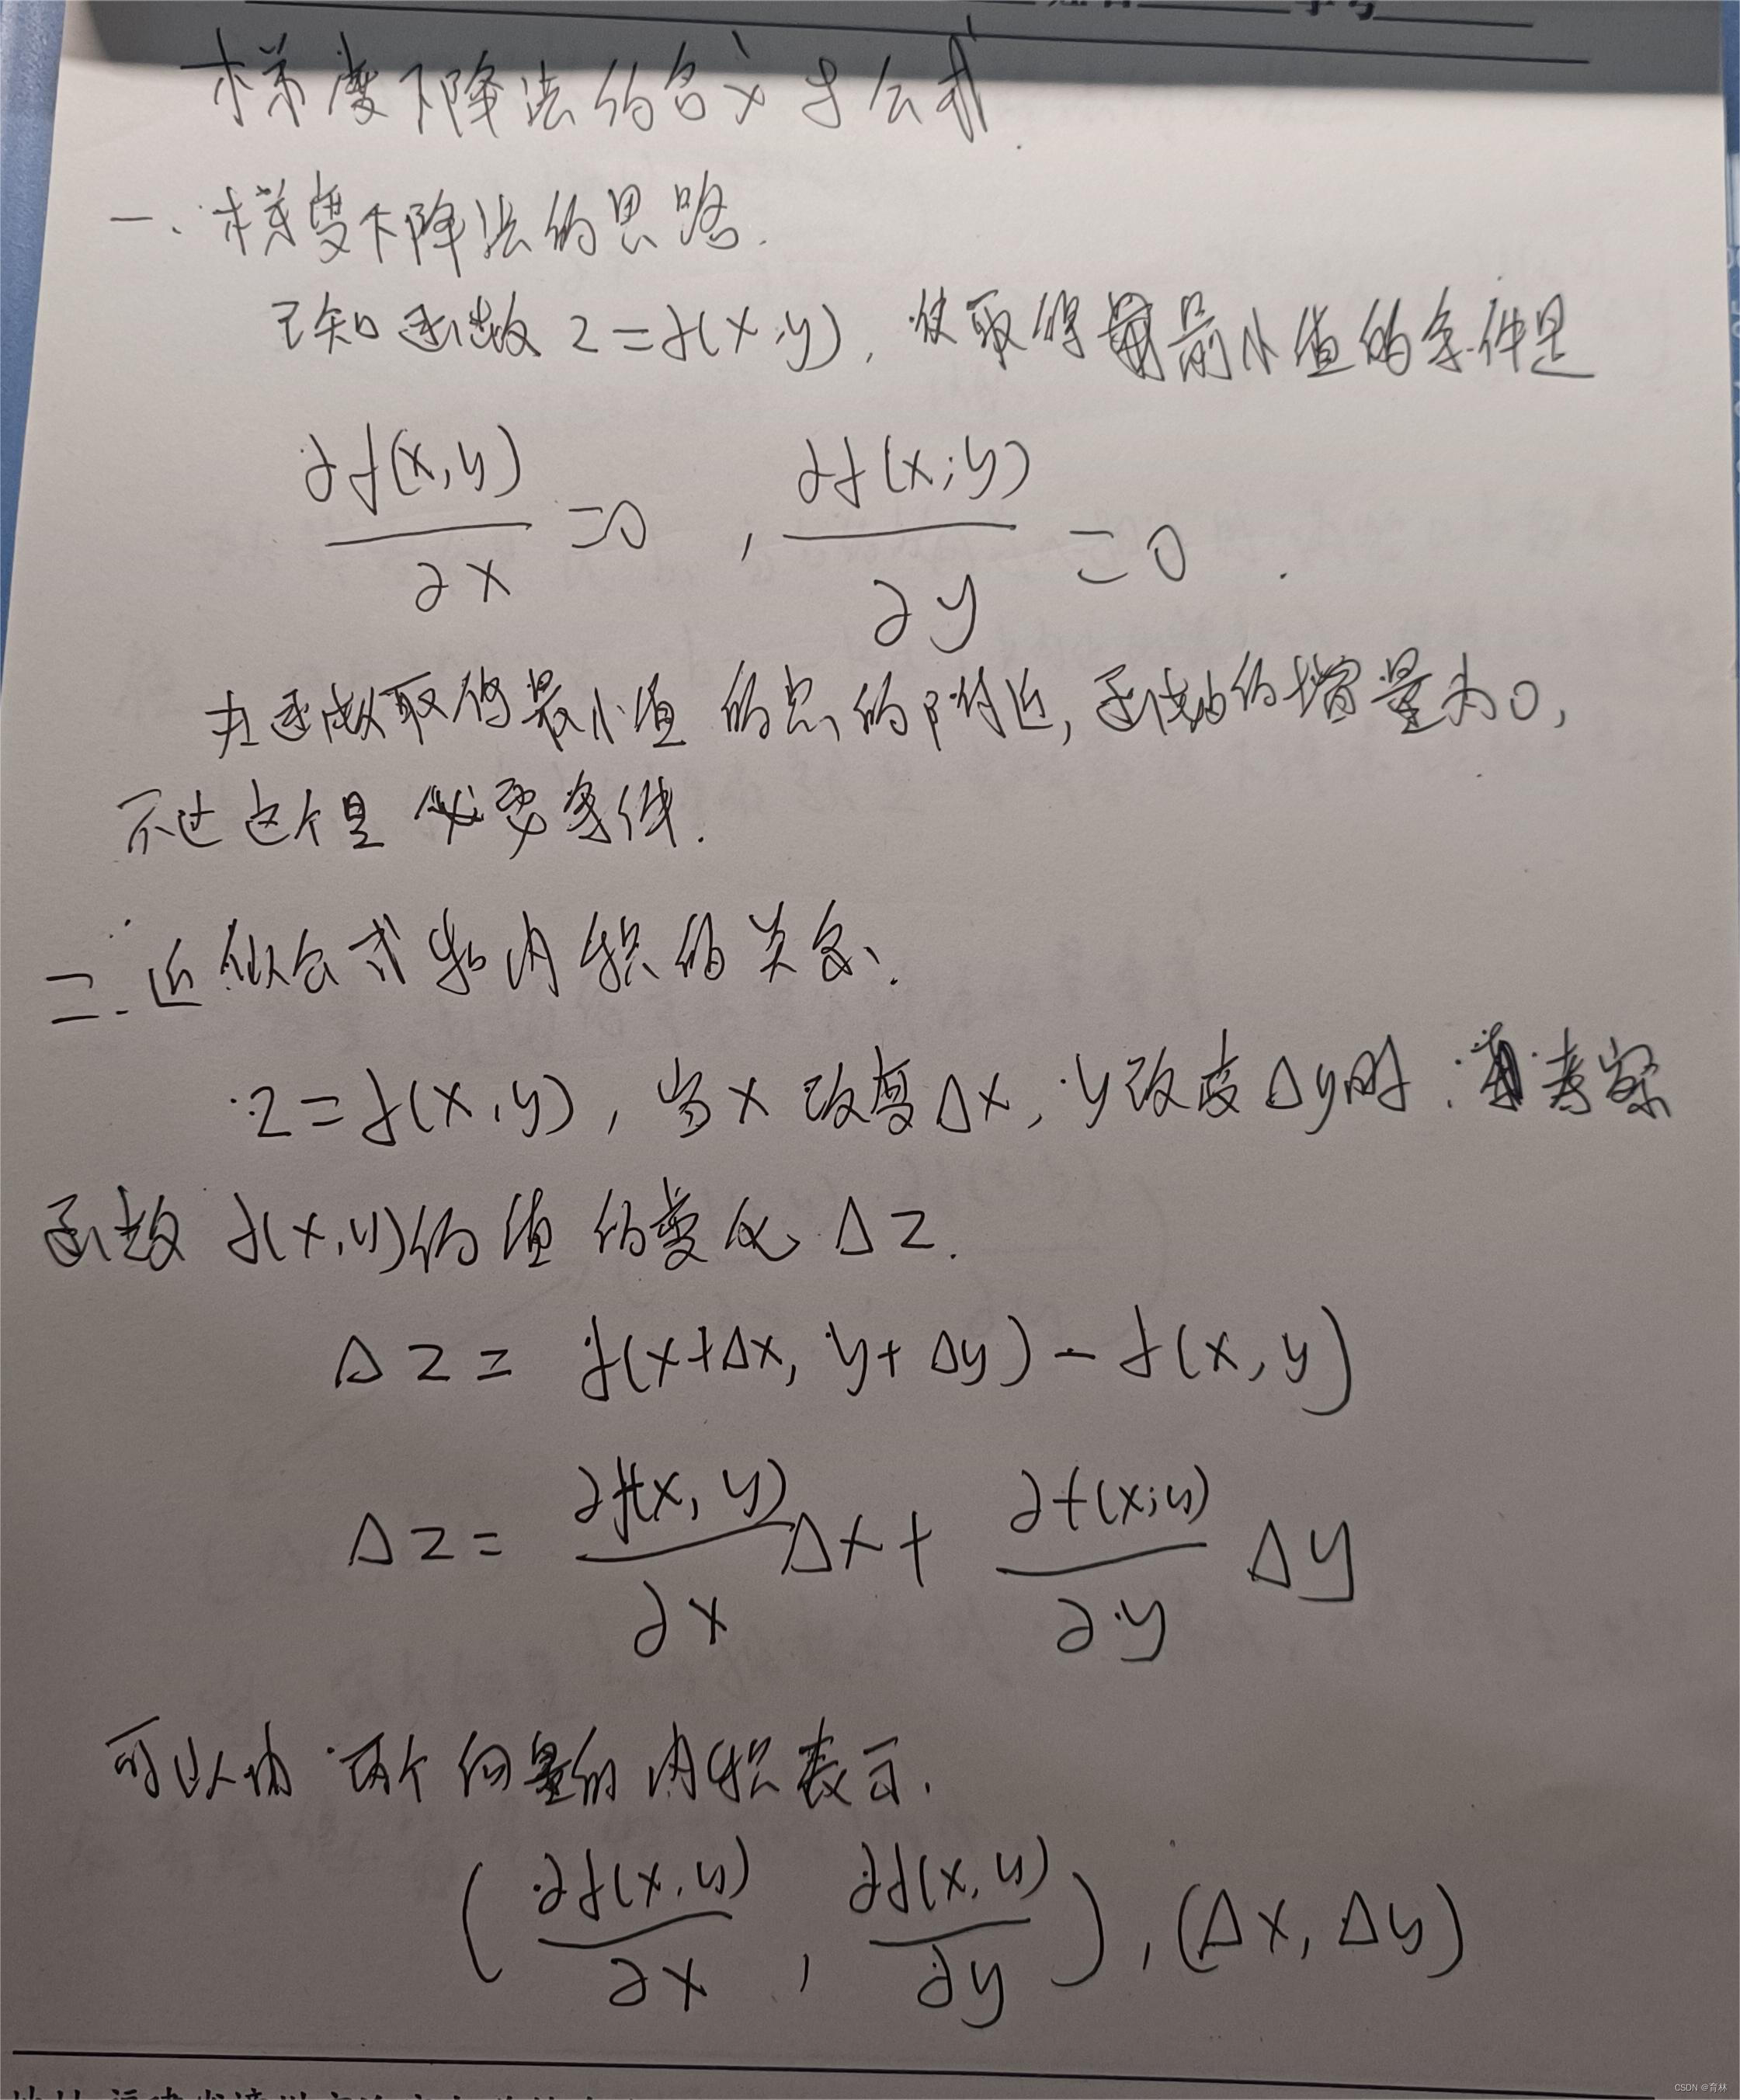 梯度下降法的含义与公式.
一、梯度下降法的思路.
已知函数 z=f(x,y), 使取得最小值的条件是
∂f(x,y)/∂x =0 , ∂f(x,y)/∂y =0 .
在函数取得最小值的点的附近, 函数的增量为0,
不过这个是必要条件.
二.近似公式和内积的关系.
z=f(x,y), 当x改变Δx, y改变Δy时, 考察
函数 f(x,y)的值的变化 Δz.
Δz= f(x+Δx, y+Δy)-f(x,y)
Δz= ∂f(x,y)/∂x Δx+ ∂f(x,y)/∂y Δy
可以由两个向量的内积表示.
(∂f(x,y)/∂x , ∂f(x,y)/∂y), (Δx, Δy)
CSDN @育林